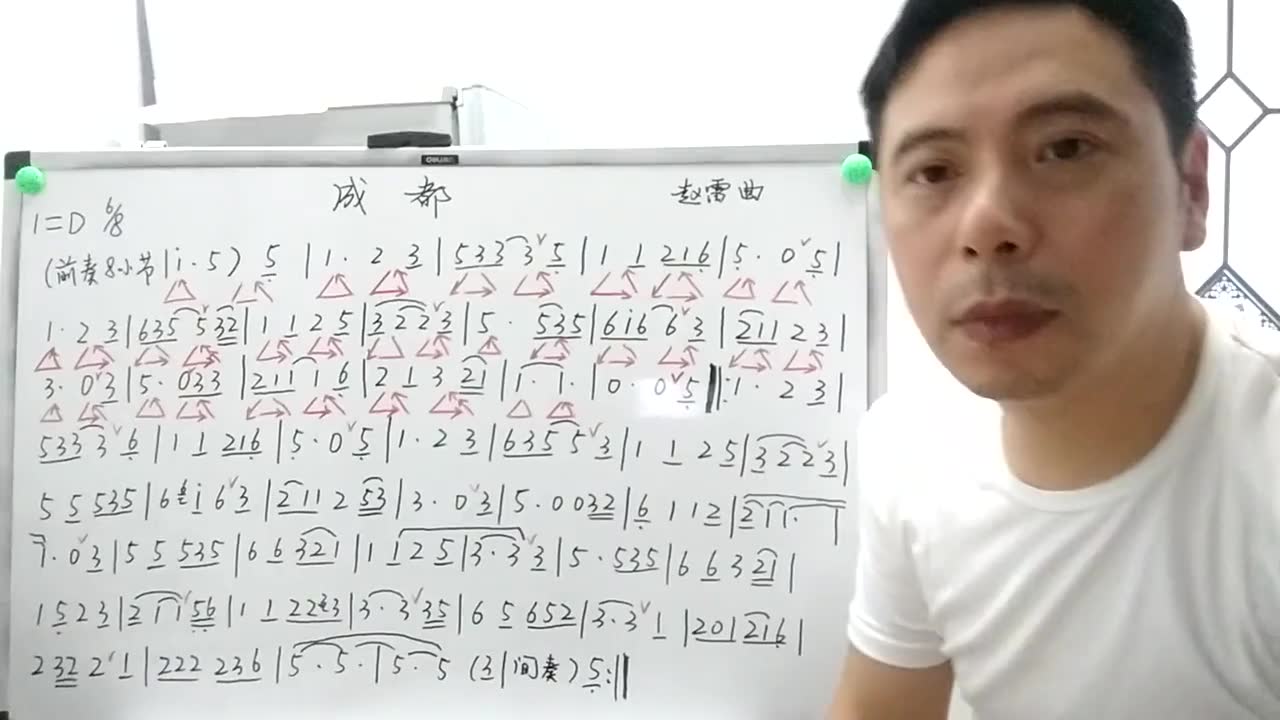 deli
成 都
赵雷曲
1=D 6/8
(前奏8小节|i·5) 5|1· 2 3|533 3ˇ5|1 1 216|5· 0ˇ5|
1· 2 3|635 5ˇ32|1 1 2 5|3 2 2ˇ3|5· 535|6i6 6ˇ3|211 2 3|
3· 0ˇ3|5· 033|211 1 6|2 1 3 21|1· 1·|0· 0ˇ5‖:1· 2 3|
533 3ˇ6|1 1 216|5· 0ˇ5|1· 2 3|635 5ˇ3|1 1 2 5|3 2 2ˇ3|
5 5 535|6 6 i 6ˇ3|211 2 53|3· 0ˇ3|5· 0 032|6 1 1 2|2 1 1· 1|
7· 0ˇ3|5 5 535|6 6 321|1 1 2 5|3· 3ˇ3|5· 535|6 6 3 21|
1 5 2 3|2 1 1ˇ56|1 1 22 3 3|3· 3ˇ35|6 5 652|3· 3ˇ1|201 216|
2 32 2ˇ1|222 236|5· 5·|5· 5 (3|间奏) 5:‖